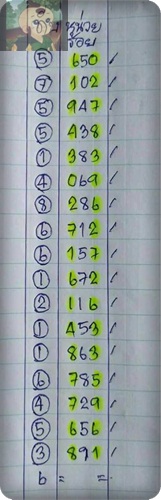 หน่วย
ร้อย
5 650 /
7 102 /
5 947 /
5 438 /
1 383 /
4 069 /
8 286 /
6 712 /
6 157 /
1 672 /
2 116 /
1 459 /
1 863 /
6 785 /
4 729 /
5 656 /
3 891 /
6 = =